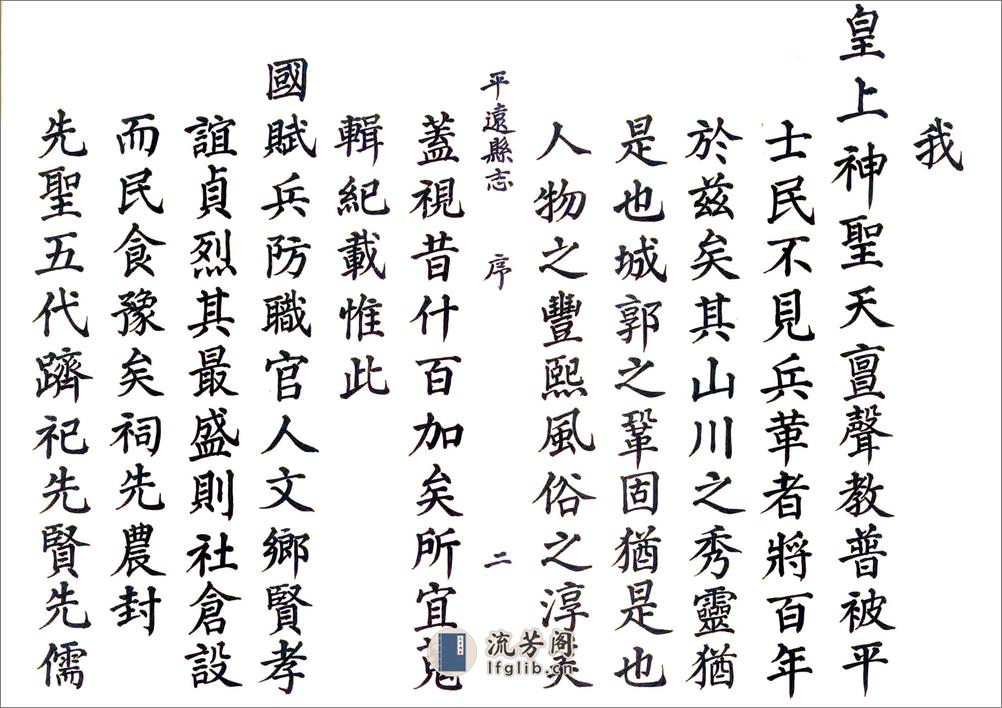 我
皇上神聖天亶聲教普被平
士民不見兵革者將百年
於兹矣其山川之秀靈猶
是也城郭之鞏固猶是也
人物之豐熙風俗之淳
平遠縣志 序 二
蓋視昔什百加矣所宜蒐
輯紀載惟此
國賦兵防職官人文鄉賢孝
誼貞烈其最盛則社倉設
而民食豫矣祠先農封
先聖五代躋祀先賢先儒
流芳阁
lfglib.cn